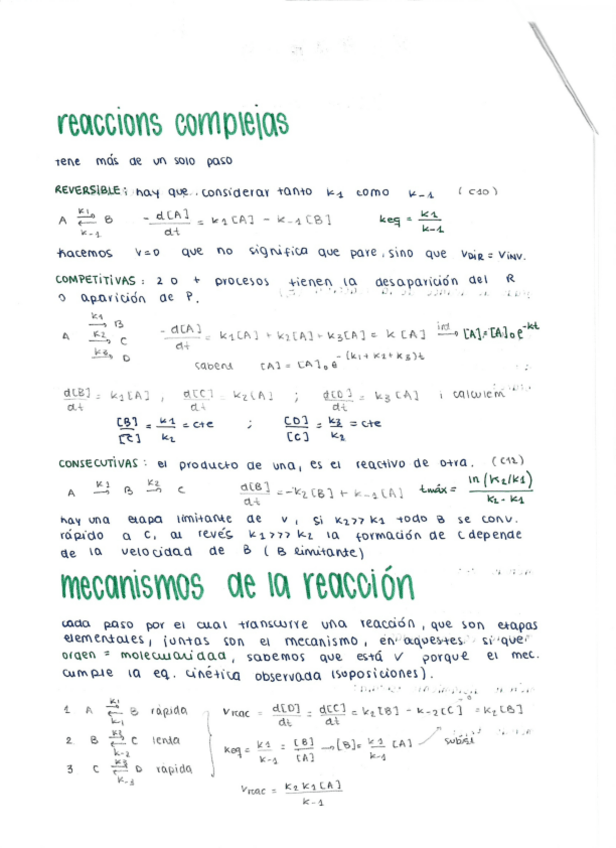 reaccions complejas
tene más de un solo paso
REVERSIBLE: hay que considerar tanto k1 como k-1 (C10)
A ⇄ B k1 k-1 - d[A]/dt = k1[A] - k-1[B] keq = k1/k-1
hacemos v=0 que no significa que pare, sino que VDIR = VINV.
COMPETITIVAS: 2 o + procesos tienen la desaparición del R
o aparición de P.
A k1→ B
k2→ C
k3→ D
-d[A]/dt = k1[A] + k2[A] + k3[A] = k[A] int→ [A]=[A]0e^-kt
sabend [A] = [A]0e^-(k1+k2+k3)t
d[B]/dt = k1[A], d[C]/dt = k2[A] ; d[D]/dt = k3[A] i calculem
[B]/[C] = k1/k2 = cte ; [D]/[C] = k3/k2 = cte
CONSECUTIVAS: el producto de una, es el reactivo de otra. (C12)
A k1→ B k2→ C d[B]/dt = -k2[B] + k-1[A] tmáx = ln(k2/k1)/k2-k1
hay una etapa limitante de v, si k2>>k1 todo B se conv.
rápido a C, al revés k1>>>k2 la formación de C depende
de la velocidad de B (B limitante)
mecanismos de la reacción
cada paso por el cual transcurre una reacción, que son etapas
elementales, juntas son el mecanismo, en aquestes si que
orden = molecularidad, sabemos que está v porque el mec.
cumple la eq. cinética observada (suposiciones).
1 A ⇄ B rápida k1 k-1
2 B ⇄ C lenta k-2
3 C ⇄ D rápida k3 k-3
vreac = d[D]/dt = d[C]/dt = k2[B] - k-2[C] = k2[B]
keq = k1/k-1 = [B]/[A] → [B] = k1/k-1 [A] subst
vreac = k2k1[A]/k-1